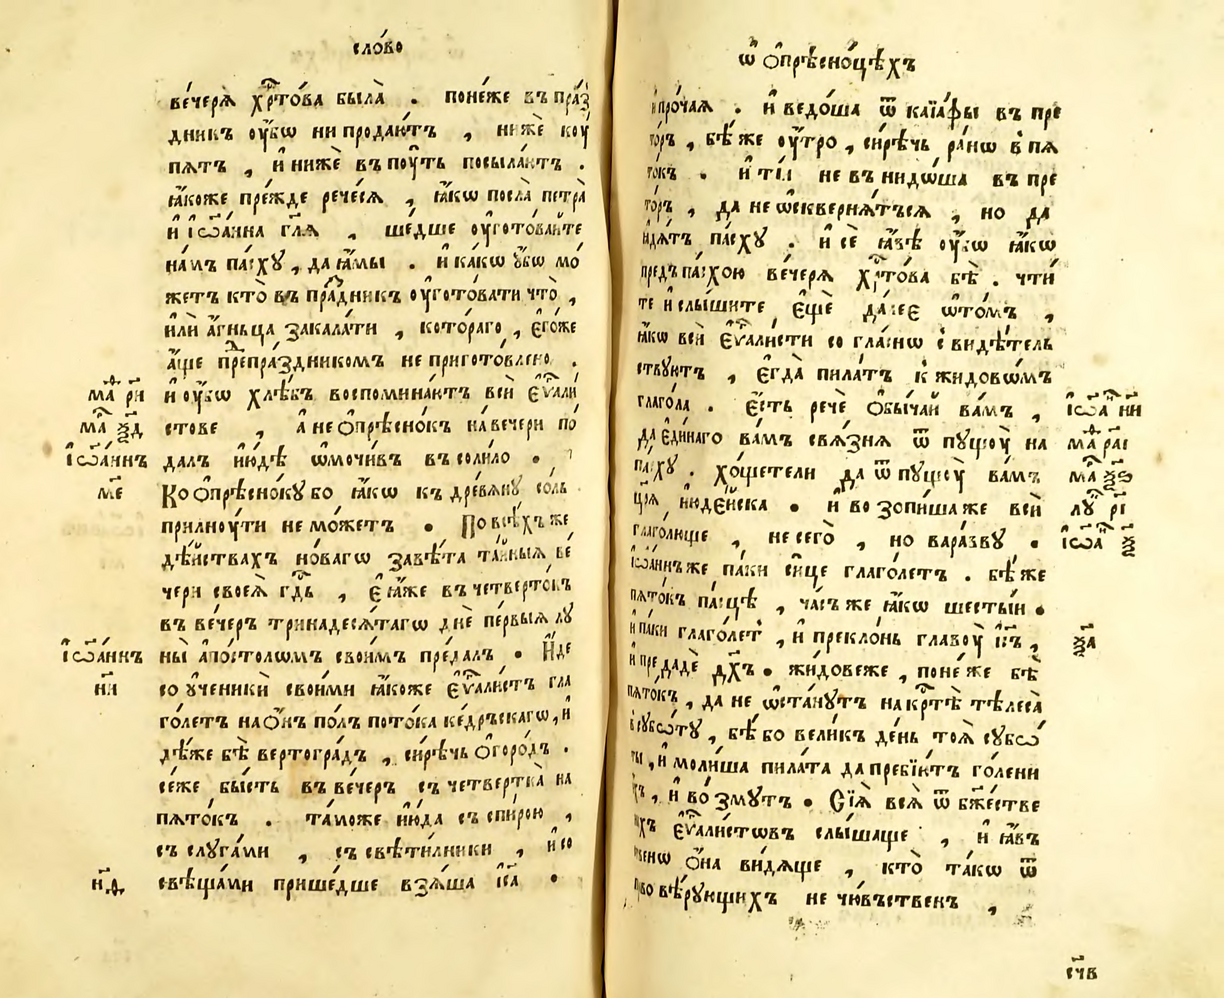 сло́во
вече́рѧ хрⷭ҇то́ва была̀ . поне́же въ пра́з
дникъ ѹ҆́бѡ ни продаю́тъ , нижѐ кѹ
пѧтъ , и҆ нижѐ въ пѹ́ть посыла́ютъ .
ꙗ҆́коже пре́жде рече́сѧ , ꙗ҆́кѡ посла̀ петра̀
и҆ і҆ѡа́нна гл҃ѧ , ше́дше ѹ҆гото́вайте
на́мъ па́сху , да ꙗ҆́мы . и҆ ка́кѡ ꙋ҆́бѡ мо́
жетъ кто̀ въ пра́дникъ ѹ҆гото́вати что̀ ,
и҆лѝ а҆́гньца закала́ти , кото́раго , є҆го́же
а҆́ще пре́пра́здникомъ не пригото́влено .
и҆ ѹ҆́бѡ хлѣ́бъ воспомина́ютъ всѝ є҆ѵⷢ҇али
сто́ве , а не ѻ҆прѣсно́къ на вече́ри по́
далъ и҆ю́дѣ ѡ҆мочи́въ въ соли́ло .
Ко ѻ҆прѣсноку́ бо ꙗ҆́кѡ къ дре́вѧну соль
прилнѹ́ти не мо́жетъ . По всѣ́хъ же
дѣ́йствахъ но́вагѡ завѣ́та та́йныѧ ве́
чери своеѧ̀ гдⷭ҇ь , є҆ ꙗ҆́же въ четверто́къ
въ ве́черъ тринадесѧ́тагѡ днѐ пе́рвыѧ лу
ны̀ а҆по́столѡмъ свои́мъ пре́далъ . И҆́де
со ᲂу҆ченикѝ свои́ми ꙗ҆́коже є҆ѵⷢ҇али́стъ гла
го́летъ на ѻ҆́нъ по́лъ пото́ка ке́дръскагѡ , и҆
дѣ́же бѣ̀ вертогра́дъ , си́рѣчь ѻ҆горо́дъ .
се́же бы́сть въ ве́черъ съ четвертка̀ на
пѧто́къ . та́може и҆ю́да съ спи́рою ,
съ слуга́ми , съ свѣти́лники , и҆ со
свѣща́ми прише́дше взѧ́ша і҆и҃са .
маⷴ҇ ри
маⷬ҇ ѯд
і҆ѡа́ннъ
м҃е
і҆ѡа́ннъ
н҃и
н҃ф
ѡ҆ ѻ҆прѣсно́цѣхъ
и҆ про́чаѧ . и҆ ведо́ша ѿ каїа́фы въ пре
то́ръ , бѣ́ же ѹ҆́тро , си́рѣчь ра́нѡ в пѧ
то́къ . и҆ ті́и не внидо́ша въ пре
то́ръ , да не ѡ҆сквернѧ́тъсѧ , но да
ꙗ҆дѧ́тъ па́сху . и҆ сѐ ꙗ҆́вѣ ѹ҆́бѡ ꙗ҆́кѡ
предъ па́схою вече́рѧ хрⷭ҇то́ва бѣ̀ . чти́
те и҆ слы́шите є҆щѐ да́лее ѡ҆ то́мъ ,
ꙗ҆́кѡ всѝ є҆ѵⷢ҇али́сти согла́снѡ свидѣ́тель
ствуютъ , є҆гда̀ пила́тъ к жидовѡ́мъ
глаго́ла . є҆́сть речѐ ѻ҆бы́чай ва́мъ ,
да є҆ди́наго ва́мъ свѧ́знѧ ѿпущѹ̀ на
па́сху . хо́щетели да ѿпущѹ̀ ва́мъ
цр҃ѧ̀ и҆юде́йска . и҆ возопи́шаже всѝ
глаго́люще , не сего̀ , но вара́вву .
і҆ѡа́ннъ же па́ки си́це глаго́летъ . бѣ́ же
пѧто́къ па́сцѣ , ча́съ же ꙗ҆́кѡ шесты́и .
и҆ па́ки глаго́лет , и҆ прекло́нь главѹ̀ і҆и҃съ ,
и҆ предадѐ дх҃ъ . жидове́же , поне́же бѣ̀
пѧто́къ , да не ѡ҆ста́нутъ на крⷭ҇тѣ̀ тѣлеса̀
в субѡ́ту , бѣ́ бо вели́къ де́нь тоѧ̀ субѡ́
ты , и҆ моли́ша пила́та да пребїю́тъ го́лени
и҆́хъ , и҆ во́змутъ . Сїѧ̀ всѧ̀ ѿ бж҃е́стве
ныхъ є҆ѵⷢ҇али́стѡвъ слы́шаще , и҆ ꙗ҆́въ
ственѡ ѻ҆на̀ ви́дѧще , кто̀ та́кѡ ѿ
пра́во вѣ́рующихъ не чю́въственъ ,
і҆ѡа н҃и
маⷴ҇ р҃аі
маⷬ҇ ѯ҃є
лу р҃і
і҆ѡа ѯ҃
ѯ҃а
сч҃в